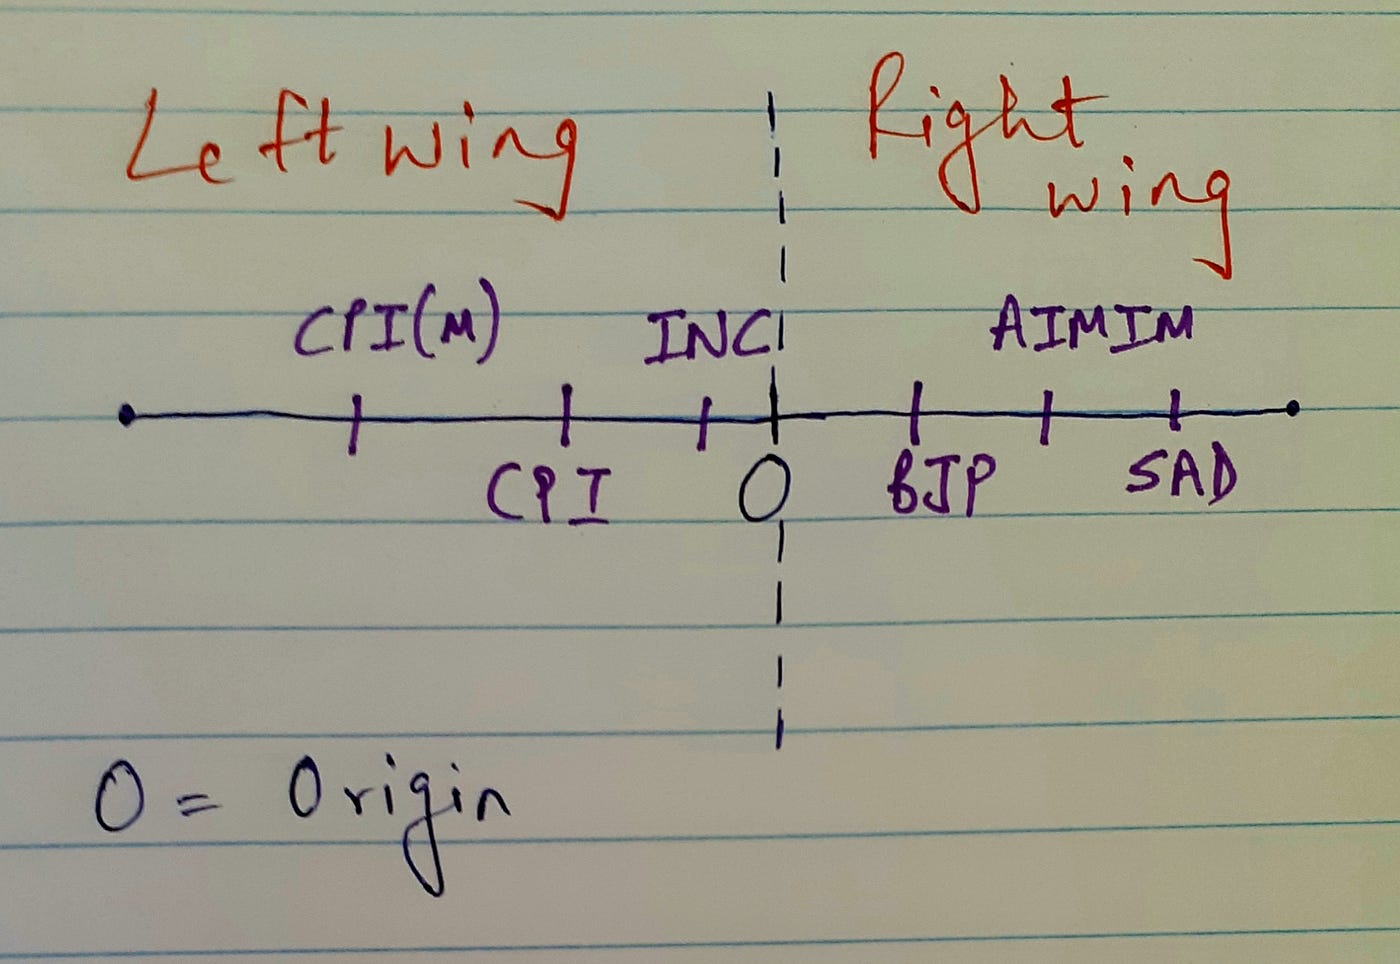 Left wing
Right
wing
CPI(M) INC AIMIM
CPI O BJP SAD
O = Origin